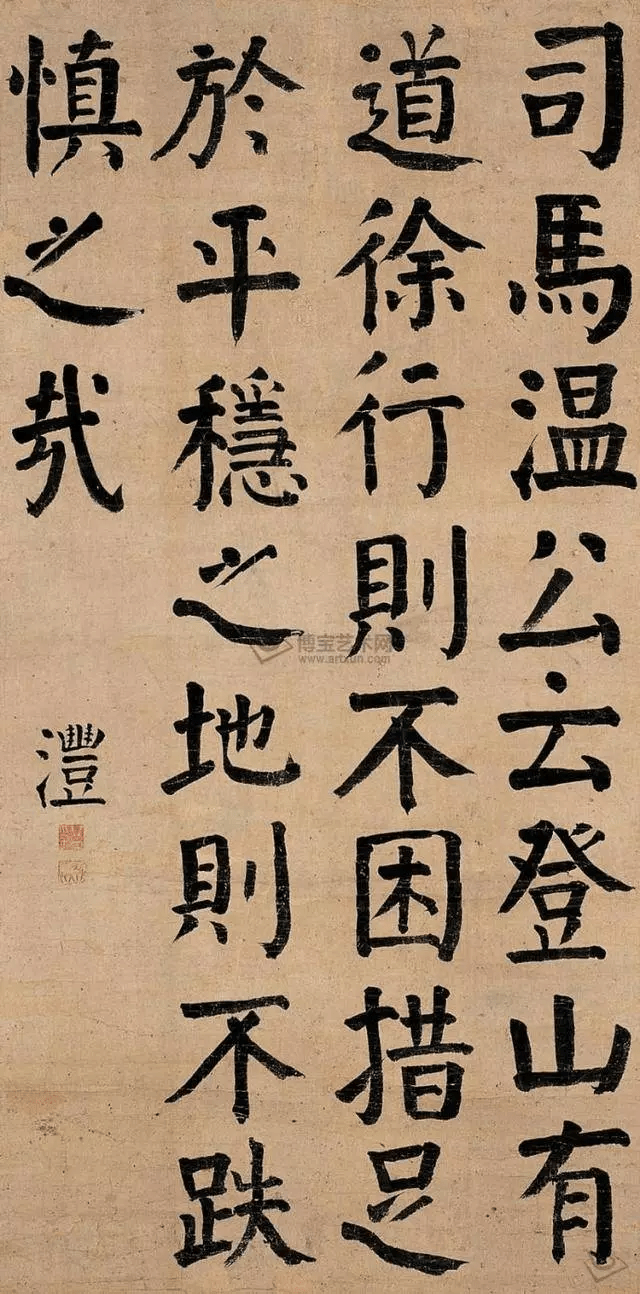 司馬温公云登山有
道徐行則不困措足
於平穩之地則不跌
慎之哉
澧
博宝艺术网
www.artxun.com